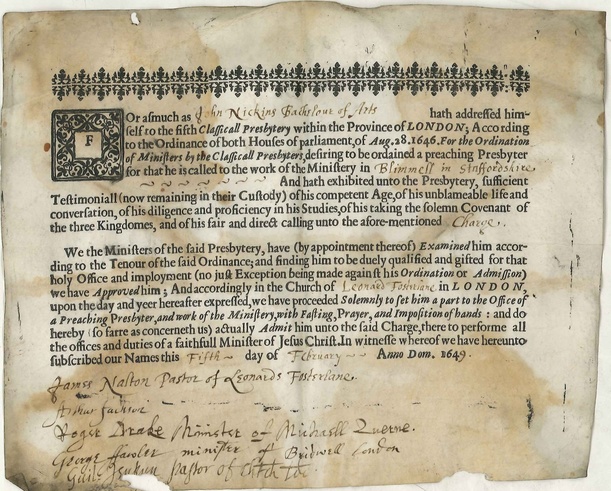 FOr asmuch as John Nickins Bachelour of Arts hath addressed him-
self to the fifth Classicall Presbytery within the Province of LONDON; According
to the Ordinance of both Houses of parliament, of Aug. 28. 1646. For the Ordination
of Ministers by the Classicall Presbyters, desiring to be ordained a preaching Presbyter
for that he is called to the work of the Ministery in Blimmell in Staffordshire
And hath exhibited unto the Presbytery, sufficient
Testimoniall (now remaining in their Custody) of his competent Age, of his unblameable life and
conversation, of his diligence and proficiency in his Studies, of his taking the solemn Covenant of
the three Kingdomes, and of his fair and direct calling unto the afore-mentioned Charge.
We the Ministers of the said Presbytery, have (by appointment thereof) Examined him accor-
ding to the Tenour of the said Ordinance; and finding him to be duely qualified and gifted for that
holy Office and imployment (no just Exception being made against his Ordination or Admission)
we have Approved him; And accordingly in the Church of Leonard Fosterlane in LONDON,
upon the day and year hereafter expressed, we have proceeded Solemnly to set him a part to the Office of
a Preaching Presbyter, and work of the Ministery, with Fasting, Prayer, and Imposition of hands: and do
hereby (so farre as concerneth us) actually Admit him unto the said Charge, there to performe all
the offices and duties of a faithfull Minister of Jesus Christ. In witnesse whereof we have hereunto
subscribed our Names this Fifth day of February Anno Dom. 1649.
James Nalton Pastor of Leonards Fosterlane.
Arthur Jackson
Roger Drake Minister of Michaell Querne.
George Fawler minister of Bridwell London
Guil. Jenkyn Pastor of